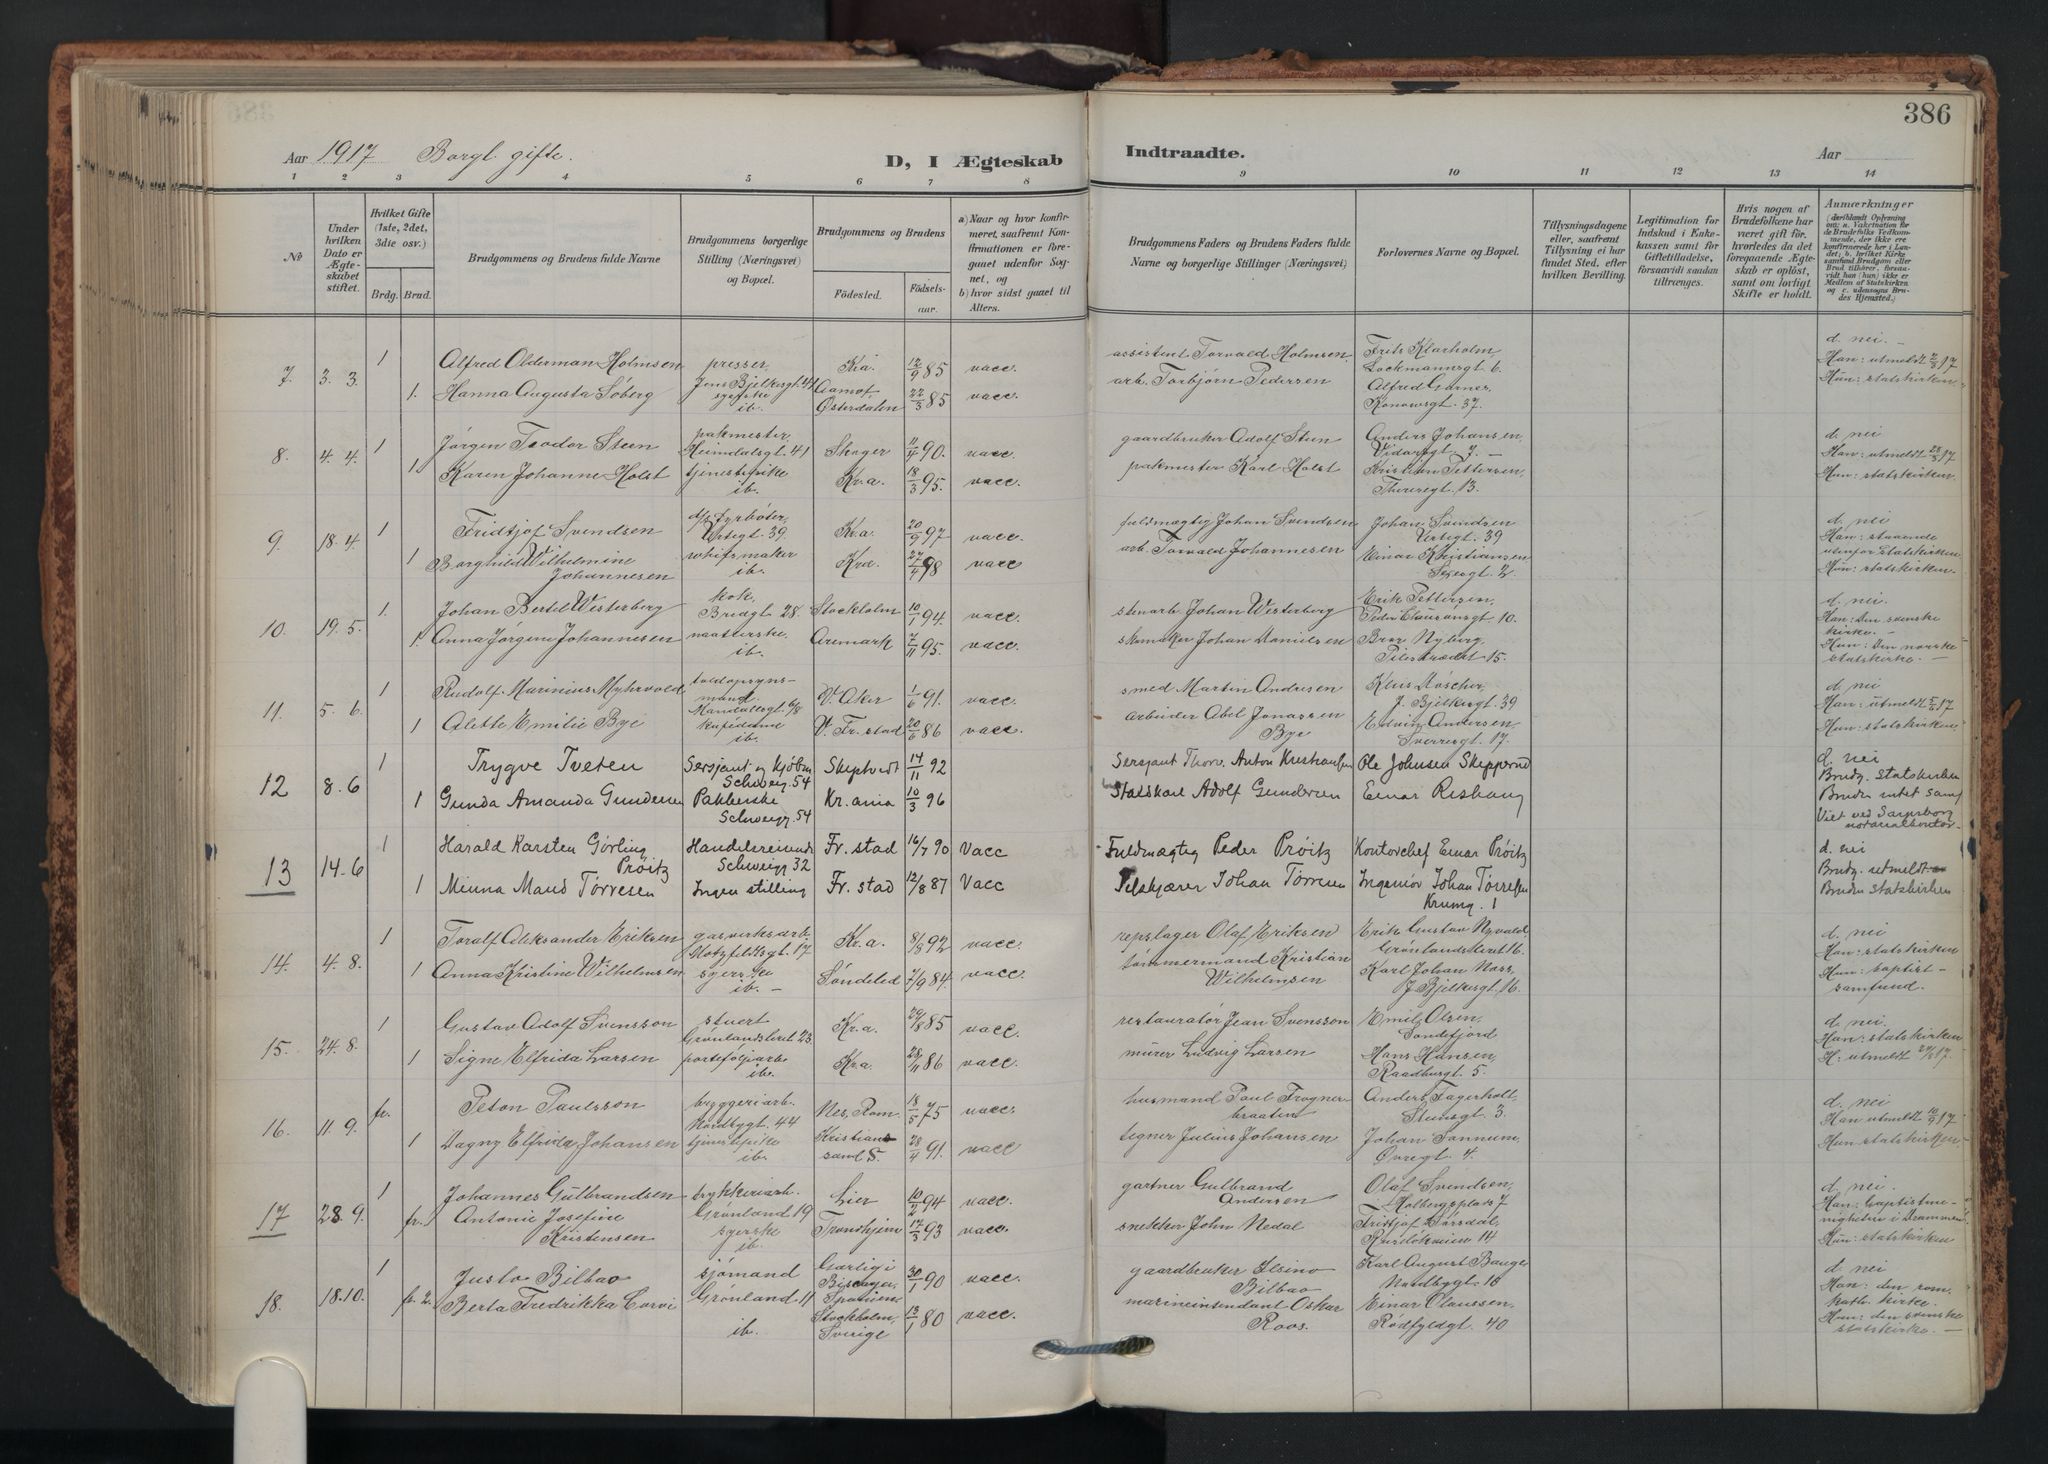 386
Aar 1917 Borgl gifte.
D, I Ægteskab Indtraadte. Aar
1 2 3 4 5 6 7 8 9 10 11 12 13 14
No
Under hvilken Dato er Ægteskabet stiftet.
Hvilket Gifte (1ste, 2det, 3die osv.)
Brdg. Brud.
Brudgommens og Brudens fulde Navne
Brudgommens borgerlige Stilling (Næringsvei) og Bopæl.
Brudgommens og Brudens
Födested. Födselsaar.
a) Naar og hvor konfirmeret, saafremt Konfirmationen er foregaaet udenfor Sognet, og
b) hvor sidst gaaet til Alters.
Brudgommens Faders og Brudens Faders fulde Navne og borgerlige Stillinger (Næringsvei)
Forlovernes Navne og Bopæl.
Tillysningsdagene eller, saafremt Tillysning ei har fundet Sted, efter hvilken Bevilling.
Legitimation for Indskud i Enkekassen samt for Giftetilladelse, forsaavidt saadan tiltrænges.
Hvis nogen af Brudefolkene har været gift før, hvorledes da det foregaaende Ægteskab er oplöst, samt om lovligt Skifte er holdt.
Anmærkninger
7. 3. 3. 1 Alfred Olderman Holmsen presser, Jens Bjelkesgt. 41 Kr.a. 12/9 85 vacc. assistent Torvald Holmsen Frits Klarholm, Lockmannsgt 6. d. nei. Han: utmeldt 2/3 17
1. Hanna Augusta Søberg syerske ib. Aamot, Østerdalen 22/3 85 vacc. arb. Torbjørn Pedersen Alfred Garner, Konowsgt. 37. Hun: statskirken
8. 4. 4. 1 Jørgen Teodor Steen pakmester, Heimdalsgt. 41 Skager 11/4 90. vacc. gaardbruker Adolf Steen Anders Johansen, Vidarsgt. 7. d. nei Han: utmeldt 28/3 17
1 Karen Johanne Holst tjenestepike ib. Kr.a. 18/3 95. vacc. pakmester Karl Holst Kristian Pettersen, Theresegt. 13. Hun: statskirken.
9. 18. 4. 1 Fridtjof Svendsen fyrbøter, Urtegt. 39. Kr.a. 20/9 97 vacc. fuldmægtig Johan Svendsen Johan Svendsen Urtegt. 39 d. nei Han: staaende utenfor statskirken.
1 Borghild Wilhelmine Johannesen ib. Kr.a. 27/4 98 vacc arb. Torvald Johannesen Einar Kristiansen Hun: statskirken.
10. 19. 5. 1. Johan Bertel Westerberg kok, Brudgt 28. Stockholm 10/1 94. vacc. stenarb Johan Westerberg Erik Pettersen, Peder Claussønsgt 10. d. nei. Han: Den svenske kirke.
1. Anna Jørgine Johannesen ib. Aremark 7/11 95. vacc. skomaker Johan Danielsen Bror Nyberg, Pilestrædet 15. Hun: Den norske statskirke.
11. 5. 6. 1 Rudolf Marinius Myhrvold toldopsynsmand, Mandalsgt. 6/8 V. Aker 1/6 91. vacc. smed Martin Andresen J. Bjelkesgt. 39 d. nei Han: utmeldt 5/6 17
1 Alette Emilie Bye kafédame ib. V. Fr.stad 20/6 86 vacc. arbeider Abel Jonassen Bye Edvin Andersen, Sverresgt. 17. Hun: statskirken.
12 8. 6 1 Trygve Tveten Sersjant og Kjøbm Schweig. 54 Skiptvedt 14/11 92 Sersjant Thorv. Anton Kristiansen Ole Johnsen Skipperud d. nei Brudg. Statskirken
1 Gunda Amanda Gundersen Pakkerske Schweigg. 54 Kr.ania 10/3 96 Statskarl Adolf Gundersen Einar Rishaug Bruden intet samf Viet ved Sarpsborg notarialkontor.
13 14. 6 1 Harald Karsten Görling Prøitz Handelsreisende Schweigg 32 Fr. stad 16/7 90 Vacc Fuldmægtig Peder Prøitz Kontorchef Einar Prøitz d. nei Brudg. utmeldt
1 Minna Maud Tørresen Ingen stilling Fr. stad 12/8 87 Vacc Johan Tørresen Ingeniør Johan Tørresen Krumg. 1 Bruden statskirken
14. 4. 8. 1 Toralf Aleksander Eriksen gasverksarb. Motzfeldtsgt. 17 Kr.a. 8/8 92 vacc. repslager Olaf Eriksen Erik Gustav Nyvold, Grønlandsleret 16. d. nei Han: statskirken
1 Anna Kristine Wilhelmsen syerske ib. Søndeled 7/9 84. vacc. tømmermand Kristian Wilhelmsen Karl Johan Næss, J. Bjelkesgt. 16. Hun: baptistsamfund.
15. 24. 8. 1 Gustav Adolf Svensson stuert Grønlandsleret 23. Kr.a. 29/8 85 vacc. restauratør Jean Svensson Emil Olsen, Sandefjord d. nei Han: statskirken
1 Signe Elfrida Larsen porteføljearb. ib. Kr.a. 28/11 86 vacc. murer Ludvig Larsen Hans Hansen, Raadhusgt. 5. H: utmeldt 17.
16. 11. 9. fr. Peton Paulsson bryggeriarb. Nordbygt. 44 Nes, Rom. 18/5 75 vacc. husmand Paul Frognerbraaten Anders Fagerholt, Stensgt. 3. d. nei Han utmeldt 17
1 Dagny Elfrida Johansen tjenestepike ib. Kristiansand S. 28/4 91. vacc tegner Julius Johansen Johan Sannum, Øvregt. 4. Hun statskirken.
17 28. 9. 1 Johannes Gulbrandsen trykkeriarb. Grønland 19 Lier 10/2 94 vacc. gartner Gulbrand Andersen Olaf Svendsen, Holbergsplads 7 d. nei. Han: baptistmenigheten i Drammen
fr. Antonie Josefine Kristensen syerske ib. Trondhjem 17/3 93 vacc. snekker John Nedal Fritjof Hun: statskirken
18. 18. 10. 1 Justo Bilbao sjømand Grønland 11 Biscaya, Spanien 30/1 90 vacc. gaardbruker Bilbao Karl August Nordbygt. 16 d. nei Han: den rom. kath. kirke.
fr. 2. Berta Fredrikka Corvi ib. Stockholm, Sverige 13/1 80 vacc. marineintendant Oskar Roos. Einar Claussen, Rødfyldgt. 40 Hun: den svenske statskirke.